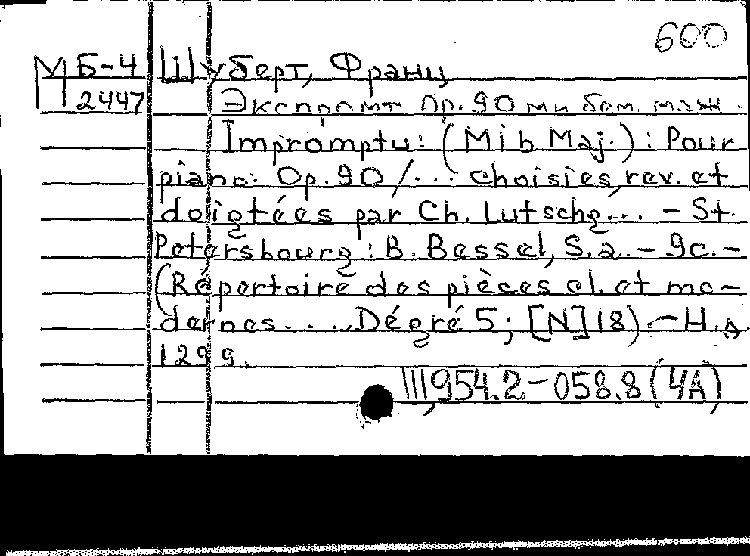 600
М Б-4 Шуберт, Франц
2447 Экспромт Op.90 ми бем. маж.
Impromptu: (Mi b Maj.): Pour
piano: Op.90 /...: choisies, rev. et
doigtées par Ch. Lutschg... - St.
Petersbourg: B. Bessel, S.a. - 9c. -
(Répertoire des pièces cl. et mo-
dernes.... Dégré 5; [N] 18). - Н.д.
1299.
Ш,954.2-058.8 (4А)